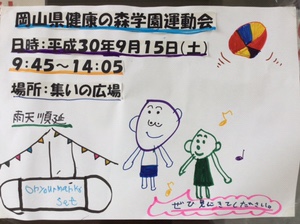 岡山県健康の森学園運動会
日時:平成30年9月15日(土)
9:45~14:05
場所:集いの広場
雨天順延
On your marks
Set
ぜひ見にきてください。